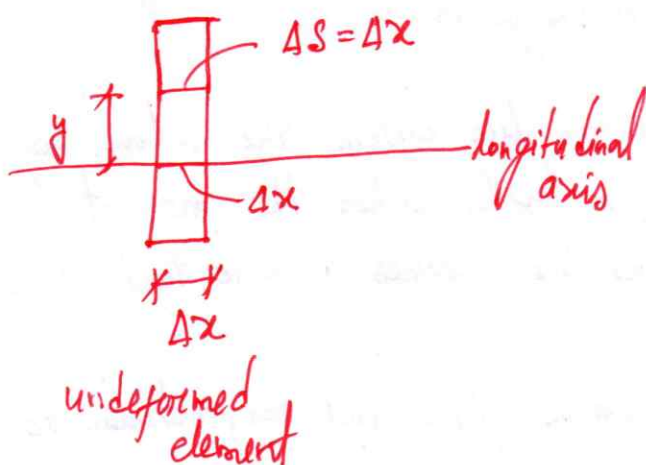 ΔS = Δx
y
longitudinal
axis
Δx
Δx
undeformed
element